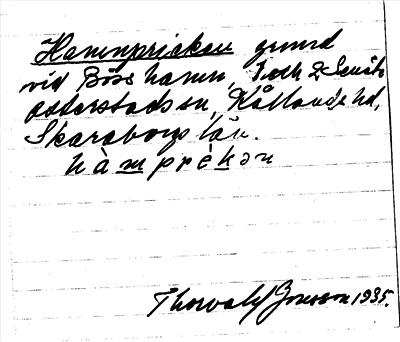 Hamnpricken grund
vid Böss hamn, 1 och 2
Otterstads sn, Kållands hd,
Skaraborgs län.
hàmprékən
Thorvald Jonsson 1935.